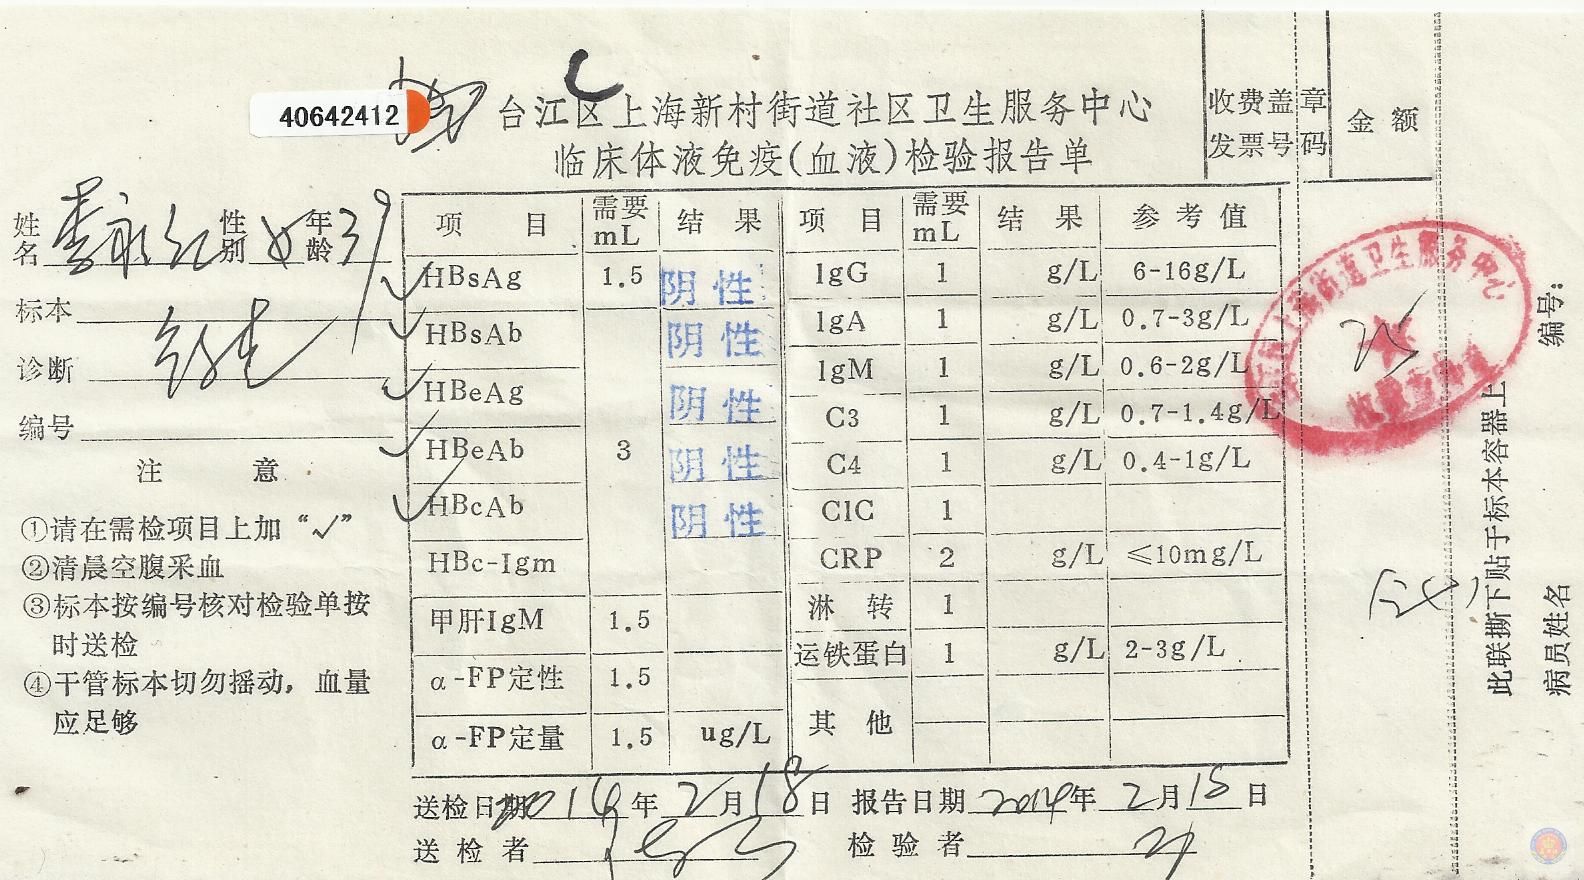 40642412
台江区上海新村街道社区卫生服务中心
临床体液免疫(血液)检验报告单
收费盖章 金额
发票号码
姓名 李永红 性别 女 年龄 39
标本
诊断
编号
注 意
①请在需检项目上加“√”
②清晨空腹采血
③标本按编号核对检验单按
时送检
④干管标本切勿摇动，血量
应足够
项 目 需要mL 结 果 项 目 需要mL 结 果 参考值
√ HBsAg 1.5 阴性 IgG 1 g/L 6-16g/L
√ HBsAb 阴性 IgA 1 g/L 0.7-3g/L
√ HBeAg 阴性 IgM 1 g/L 0.6-2g/L
C3 1 g/L 0.7-1.4g/L
√ HBeAb 3 阴性 C4 1 g/L 0.4-1g/L
√ HBcAb 阴性 CIC 1
HBc-Igm CRP 2 g/L ≤10mg/L
甲肝IgM 1.5 淋 转 1
运铁蛋白 1 g/L 2-3g/L
α-FP定性 1.5
α-FP定量 1.5 ug/L 其 他
送检日期 2014年2月18日 报告日期 2014年2月18日
送检者 检验者
街道卫生服务中心
编号：
此联撕下贴于标本容器上
病员姓名